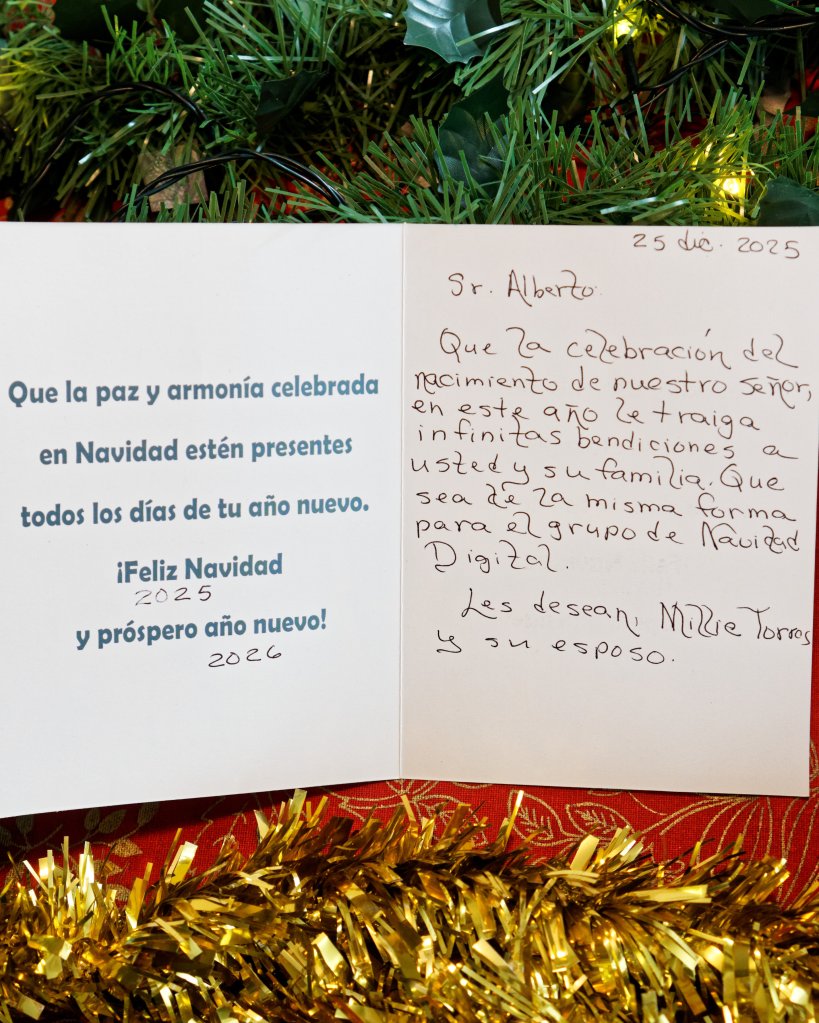 Que la paz y armonía celebrada
en Navidad estén presentes
todos los días de tu año nuevo.
¡Feliz Navidad
2025
y próspero año nuevo!
2026
25 dic. 2025
Sr. Alberto:
Que la celebración del
nacimiento de nuestro señor,
en este año le traiga
infinitas bendiciones a
usted y su familia. Que
sea de la misma forma
para el grupo de Navidad
Digital.
Les desean, Millie Torres
y su esposo.